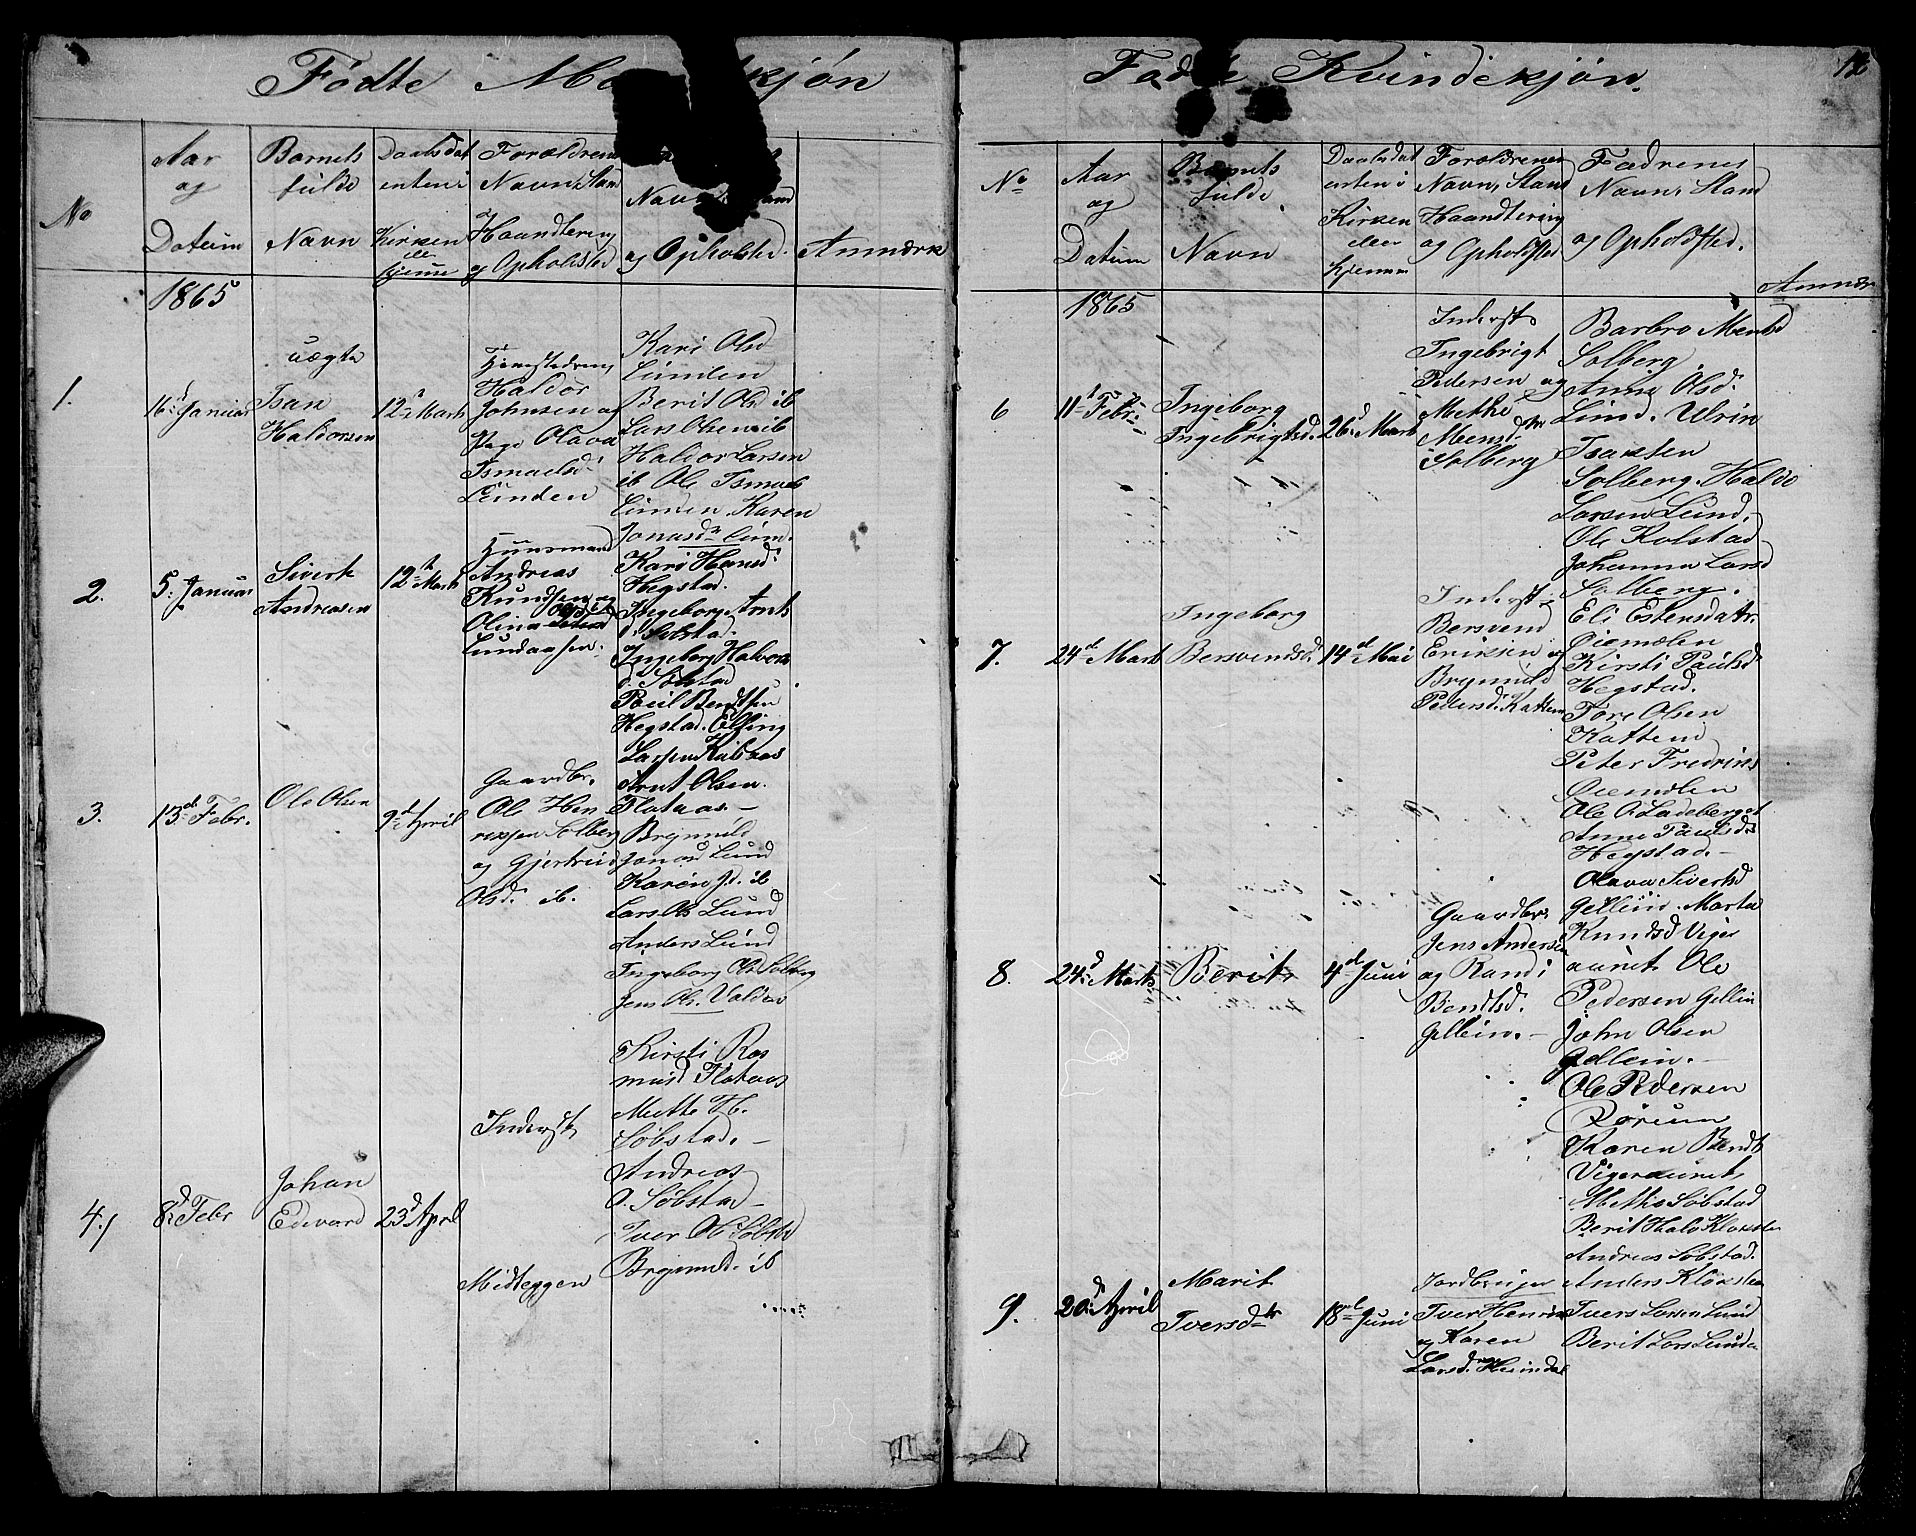 Fødte Ma kjøn
No
Aar
og
Datum
Barnets
fulde
Navn
Daabsdat
enten i
Kirken
eller
hjeme
Forældrenes
Navn, Stand
Haandtering
og Opholdsted
Navn Stand
og Opholdsted.
Anmærk
1865
1.
16d Januar
uægte
Isak
Haldorsen
12te Marts
Haldor
Johnsen og
Pige Olava
Ismaelsd
Lunden
Kari Olsd
Lunden
Berit Olsd ib
Lars Olsen ib
Haldor Larsen
ib Ole Ismaels
Lunden. Karen
Jonasdr Lund.
2.
5. Januar
Sivert
Andreasen
12te Marts
Huusmand
Andreas
Knudsen og
Olina
Lundaasen.
Kari Hansd
Hegstad.
Ingeborg Arnts
d. Søbstad.
Ingeborg Halvors
d. Søbstad
Poul Bendtsen
Hegstad. Elling
Larsen Kilaas
3.
13de Febr.
Ole Olsen
9d April
Gaardbr.
Ole Hen
riksen Solberg
og Gjertrud
Olsd. ib.
Arnt Olsen.
Flataas.
Brynild
Jonas Lund
Karen Jd. ib
Lars Ols Lund
Anders Lund
Ingeborg Ols Solberg
Jens Ols. Valdø
4.
8d Febr
Johan
Edevard
23d April
Inderst
Midteggen
Kirsti Ras
musd Flataas
Mette H.
Søbstad.
Andreas
O. Søbstad
Iver Ol Søbstad
Brynild. ib
Fødte Kvindekjøn.
12
No
Aar
og
Datum
Barnets
fulde
Navn
Daabsdat
enten i
Kirken
eller
hjemm
Forældrenes
Navn, Stand
Haandtering
og Opholdsted
Fadrenes
Navn, Stand
og Opholdsted.
Anmær
1865
6
11te Febr.
Ingeborg
Ingebrigtsd.
26d Marts
Inderst
Ingebrigt
Pedersen og
Methe
Monsdtr
Solberg
Barbro Monsd
Solberg
Anne Olsd.
Lund. Ulrin
Isaksten
Solberg. Haldo
Larsen Lund.
Ole Kolstad
Johanna Larsd
Solberg.
7.
24d Marts
Ingeborg
Bersvendsd.
14d Mai
Inderst
Bersvend
Eriksen og
Brynild
Pedersd. Kattem
Eli Estensdatr.
Øiemælen
Kirsti Paulsd
Hegstad.
Tore Olsen
Kattem
Peter Fredriks
Øiemælen
Ole O Ladeberget
Anne Paulsd
Hegstad.
8.
24d Marts
Berit
4de Juni
Gaardbr.
Jens Andersen
og Randi
Bendtsd.
Gellein.
Olava Sivertsd
Gellein. Marta
Knudsd Viger
aunet Ole
Pedersen Gellin
John Olsen
Gellein.
Ole Pedersen
Rørum
Karen Bendt
Vigeraunet
9.
20d April
Marit
Iversdtr
18de Juni
Jordbruger
Iver Henrik
og Karen
Larsd. Heimdal
Methe Søbstad
Berit Hals Kloksten
Andreas Søbstad.
Anders Kloksten
Ivers Larsen Lund
Berit Lars Lunden